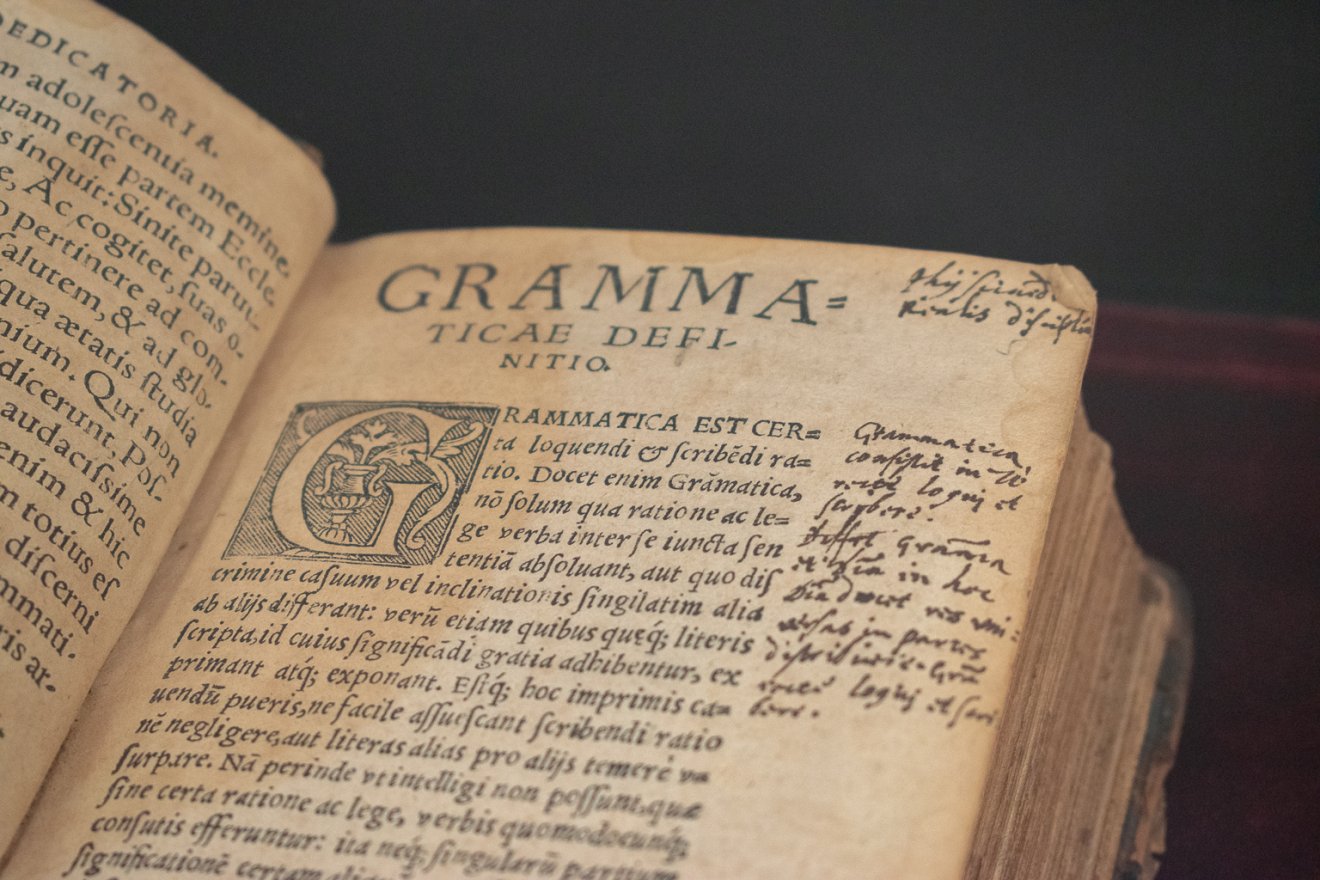 DEDICATORIA.
m adoleſcentia memine,
uam eſſe partem Eccle.
s inquit: Sinite paruu-
e, Ac cogitet, ſuas o.
o pertinere ad com.
ſalutem, & ad glo.
qua ætatis ſtudia
nium. Qui non
dicerunt, Poſ.
audaciſsime
enim & hic
m totius eſ
diſcerni
mmati.
ris ar-
GRAMMA=
TICAE DEFI-
NITIO.
GRAMMATICA EST CER=
ta loquendi & ſcribēdi ra=
tio. Docet enim Grāmatica,
nō ſolum qua ratione ac le=
ge verba inter ſe iuncta ſen
tentiā abſoluant, aut quo diſ
crimine caſuum vel inclinationis ſingilatim alia
ab alijs differant: verū etiam quibus quęq́; literis
ſcripta, id cuius ſignificādi gratia adhibentur, ex
primant atq́; exponant. Eſtq́; hoc imprimis ca=
uendū pueris, ne facile aſſueſcant ſcribendi ratio
nē negligere, aut literas alias pro alijs temerè vſ=
ſurpare. Nā perinde vt intelligi non poſſunt, quæ
ſine certa ratione ac lege, verbis quomodocunq́;
conſutis efferuntur: ita neq́; ſingularū partium
ſignificationē certam
Grammatica
conſiſtit in
recte loqui et
ſcribere.
Differt
in hoc
res
in partes
loqui et